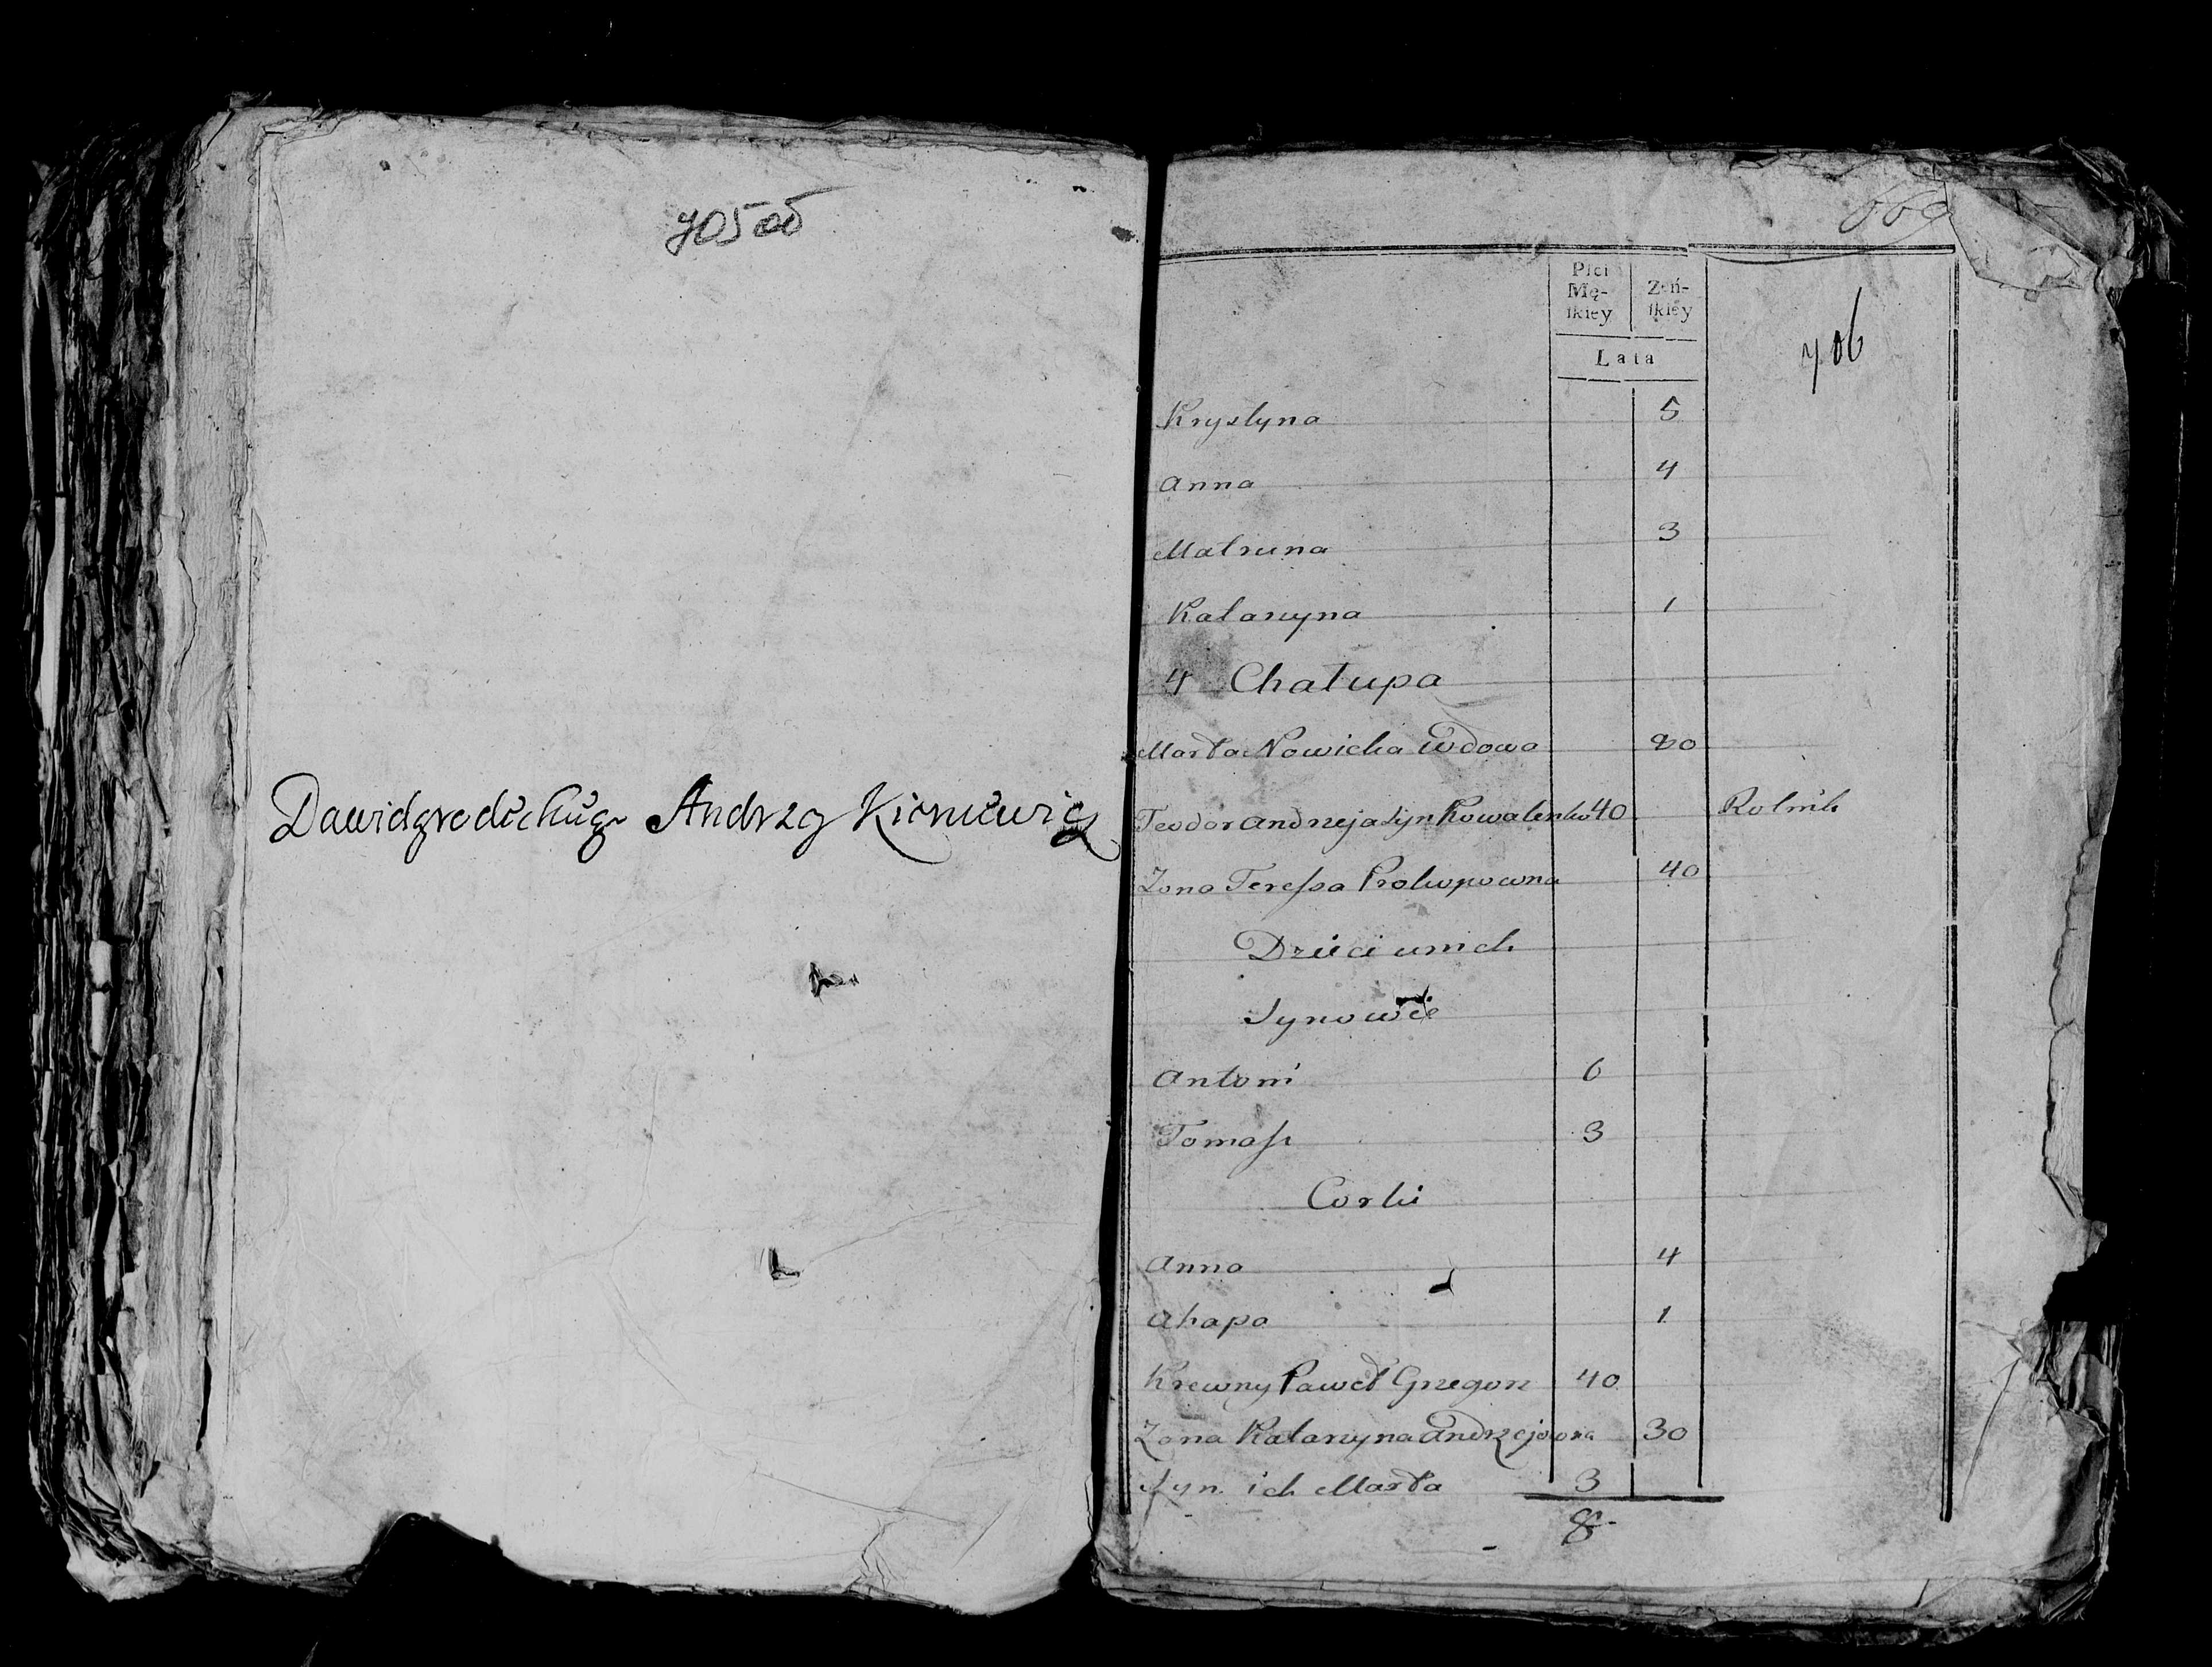 705 об
Dawidgrodeckiego Andrzej Kieniewicz
669
Płci Mę-ſkiey
Żeń-ſkiey
Lata
706
Krystyna 5
Anna 4
Matruna 3
Katarzyna 1
4 Chałupa
Marta Nowicka Wdowa 20
Teodor Andrzeja syn Kowalenko 40 Rolnik
Żona Teressa Prokopowna 40
Dzieci u nich
Synowie
Antoni 6
Tomasz 3
Corki
Anna 4
Ahapa 1
Krewny Paweł Grzegorz 40
Żona Katarzyna Andrzejowna 30
Syn ich Marta 3
8